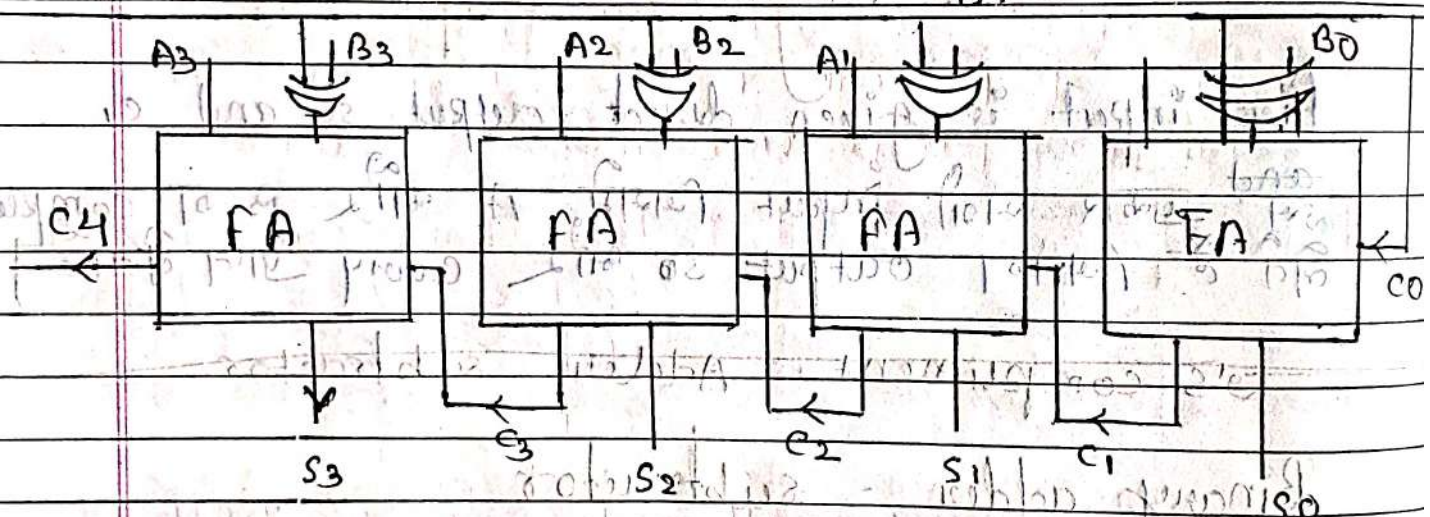 A3 B3 A2 B2 A1 B0
C4 FA FA FA FA C0
S3 C3 S2 C2 S1 C1 S0